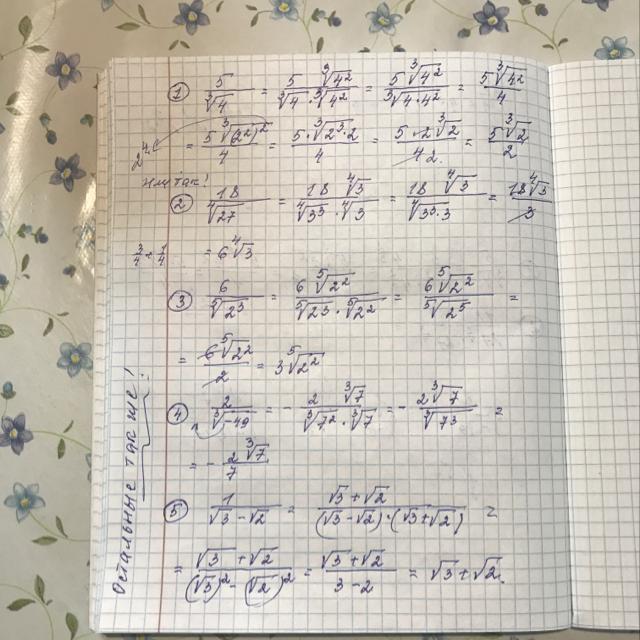 ① 5/∛4 = 5 ∛4²/∛4 · ∛4² = 5 ∛4²/∛4 · 4² = 5 ∛4²/4
= 5 ∛(2²)²/4 = 5 · ∛2³ · 2/4 = 5 · 2 ∛2/4 2 = 5 ∛2/2
2⁴
или так!
② 18/∜27 = 18 ∜3/∜3³ · ∜3 = 18 ∜3/∜3³ · 3 = 18 ∜3/3
3/4 + 1/4 = 6 ∜3
③ 6/⁵√2³ = 6 ⁵√2²/⁵√2³ · ⁵√2² = 6 ⁵√2²/⁵√2⁵ =
= 6 ⁵√2²/2 = 3 ⁵√2²
④ 2/∛-49 = - 2 ∛7/∛7² · ∛7 = - 2 ∛7/∛7³ =
= - 2 ∛7/7
⑤ 1/√3 - √2 = √3 + √2/(√3 - √2) · (√3 + √2) =
= √3 + √2/(√3)² - (√2)² = √3 + √2/3 - 2 = √3 + √2.
Остальные так же!